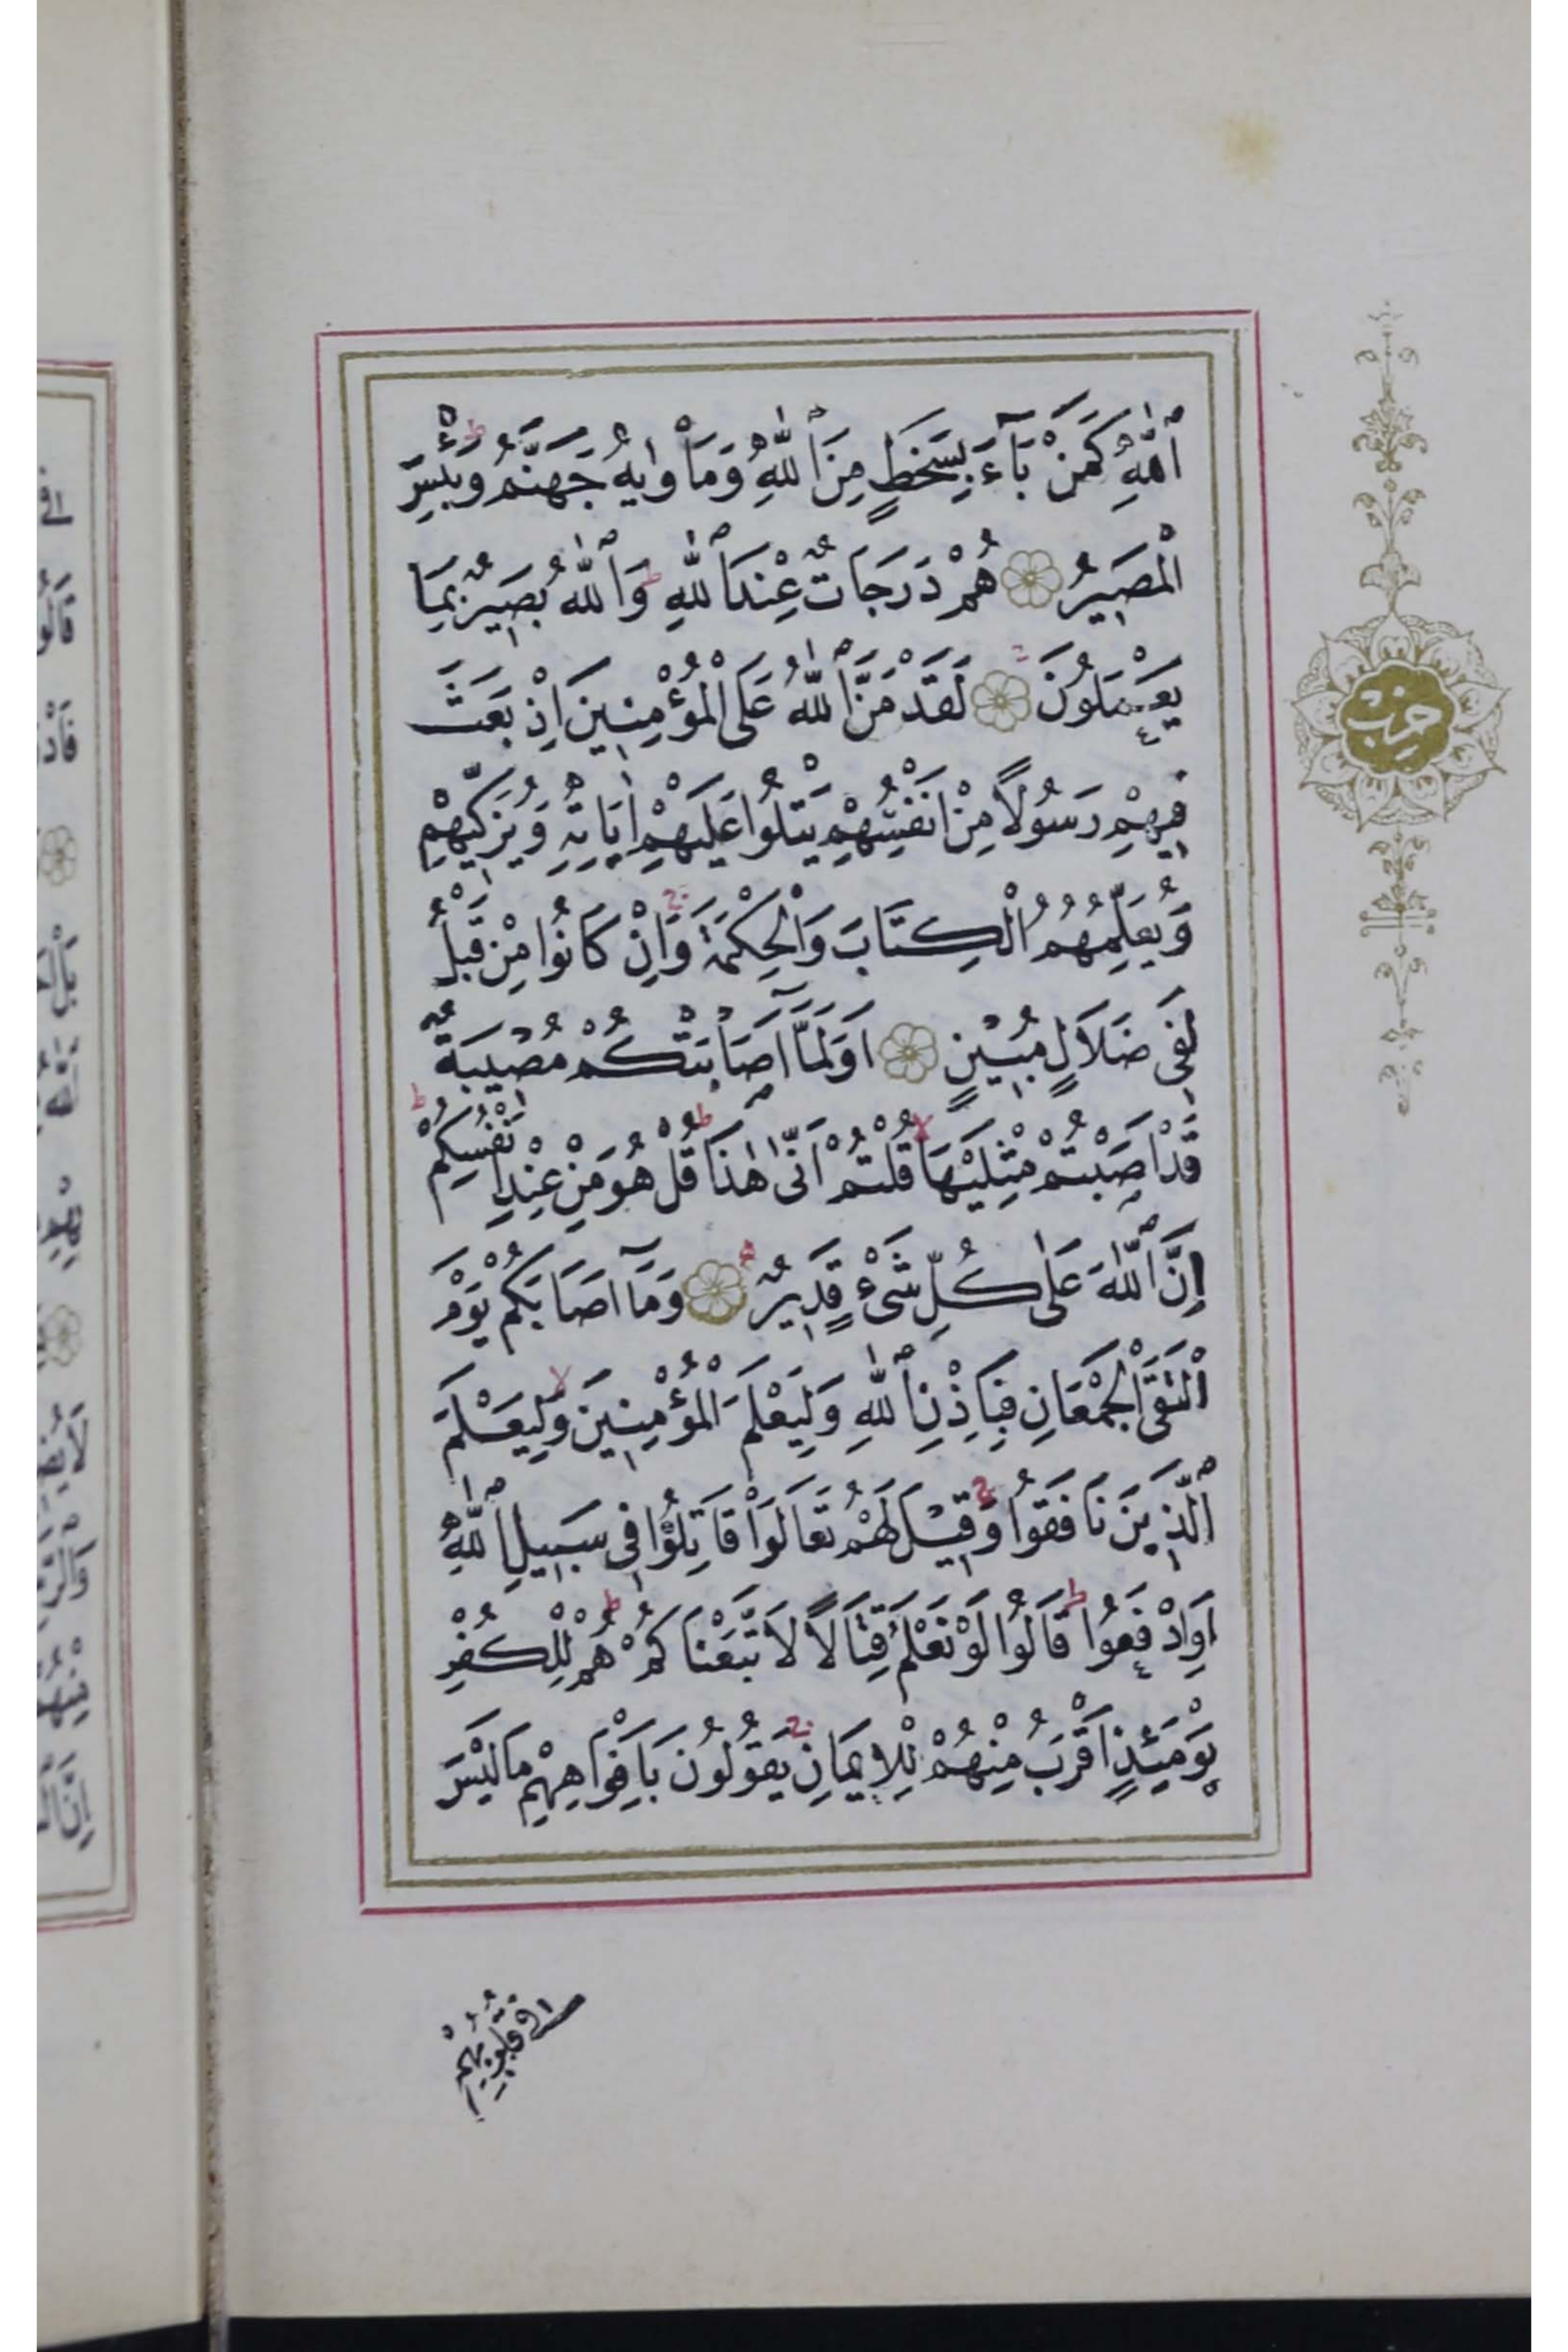 ٱللّٰهِ كَمَنْ بَآءَ بِسَخَطٍ مِنَ ٱللّٰهِ وَمَأْوٰيهُ جَهَنَّمُ وَبِئْسَ
الْمَصِيرُ هُمْ دَرَجَاتٌ عِنْدَ ٱللّٰهِ وَٱللّٰهُ بَصِيرٌ بِمَا
يَعْمَلُونَ لَقَدْ مَنَّ ٱللّٰهُ عَلَى الْمُؤْمِنِينَ اِذْ بَعَثَ
فِيهِمْ رَسُولًا مِنْ اَنْفُسِهِمْ يَتْلُوا عَلَيْهِمْ اٰيَاتِهِ وَيُزَكِّيهِمْ
وَيُعَلِّمُهُمُ الْكِتَابَ وَالْحِكْمَةَ وَاِنْ كَانُوا مِنْ قَبْلُ
لَفِى ضَلَالٍ مُبِينٍ اَوَلَمَّا اَصَابَتْكُمْ مُصِيبَةٌ
قَدْ اَصَبْتُمْ مِثْلَيْهَا قُلْتُمْ اَنّٰى هٰذَا قُلْ هُوَ مِنْ عِنْدِ اَنْفُسِكُمْ
اِنَّ ٱللّٰهَ عَلٰى كُلِّ شَىْءٍ قَدِيرٌ وَمَآ اَصَابَكُمْ يَوْمَ
الْتَقَى الْجَمْعَانِ فَبِاِذْنِ ٱللّٰهِ وَلِيَعْلَمَ الْمُؤْمِنِينَ وَلِيَعْلَمَ
الَّذِينَ نَافَقُوا وَقِيلَ لَهُمْ تَعَالَوْا قَاتِلُوا فِى سَبِيلِ ٱللّٰهِ
اَوِادْفَعُوا قَالُوا لَوْ نَعْلَمُ قِتَالًا لَاتَّبَعْنَاكُمْ هُمْ لِلْكُفْرِ
يَوْمَئِذٍ اَقْرَبُ مِنْهُمْ لِلْاِيمَانِ يَقُولُونَ بِاَفْوَاهِهِمْ مَا لَيْسَ
فِى قُلُوبِهِمْ
حزب